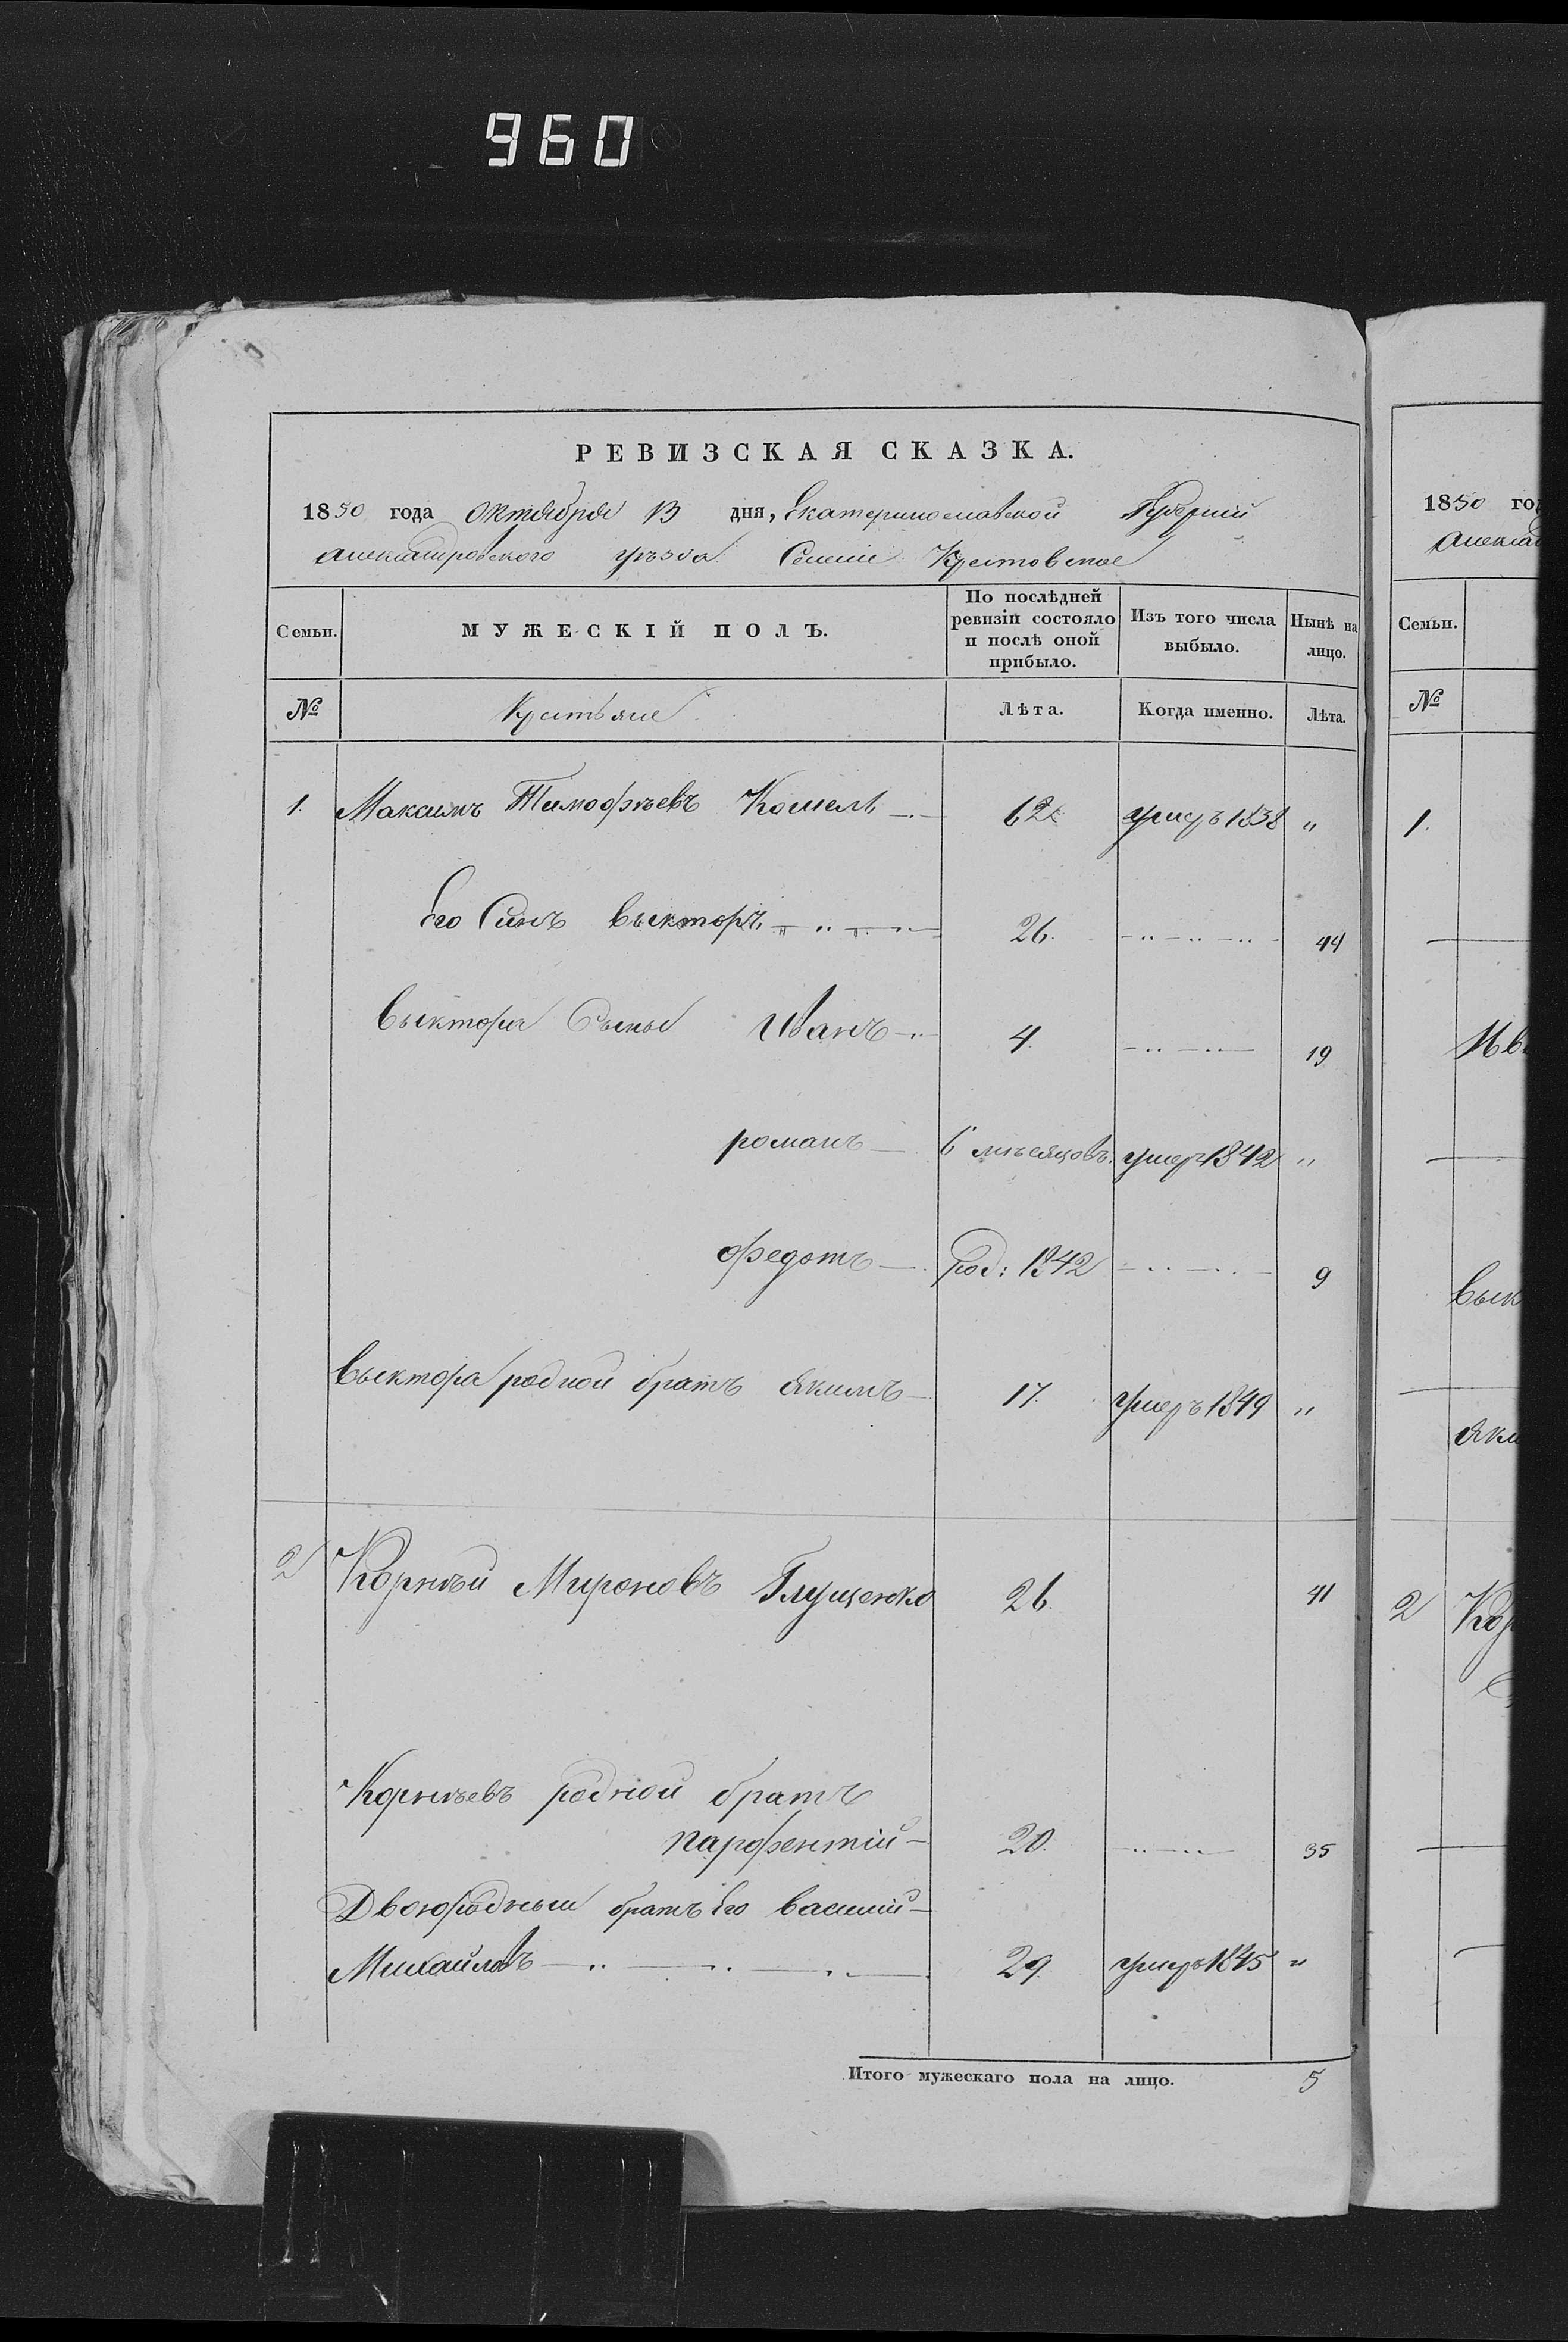 960
РЕВИЗСКАЯ СКАЗКА.
1850 года Октября 13 дня, Екатеринославской Губернiи
Александровского уѣзда Селенiе Крестовское
Семьи. МУЖЕСКIЙ ПОЛЪ. По послѣдней ревизiи состояло и послѣ оной прибыло. Изъ того числа выбыло. Нынѣ на лицо.
№ Крестьяне Лѣта. Когда именно. Лѣта.
1. Максимъ Тимофѣевъ Кошель 62 умеръ 1838 "
Его Синъ Выкторъ 26. 44
Выктора Сыны Иванъ 4. 19
романъ 6 мѣсяцовъ. умеръ 1842 "
Федотъ род: 1842 9
Выктора родной братъ Якимъ 17. умеръ 1849 "
2 Корнѣй Мироновъ Глущенко 26. 41
Корнѣевъ родной братъ
парфентiй 20. 35
Двоюродный братъ Его василiй
Михайловъ 29. умеръ 1845 "
Итого мужескаго пола на лицо. 5
1850 го
Алексан
Семьи.
№
1.
Ив
Вык
Яки
2 Кор